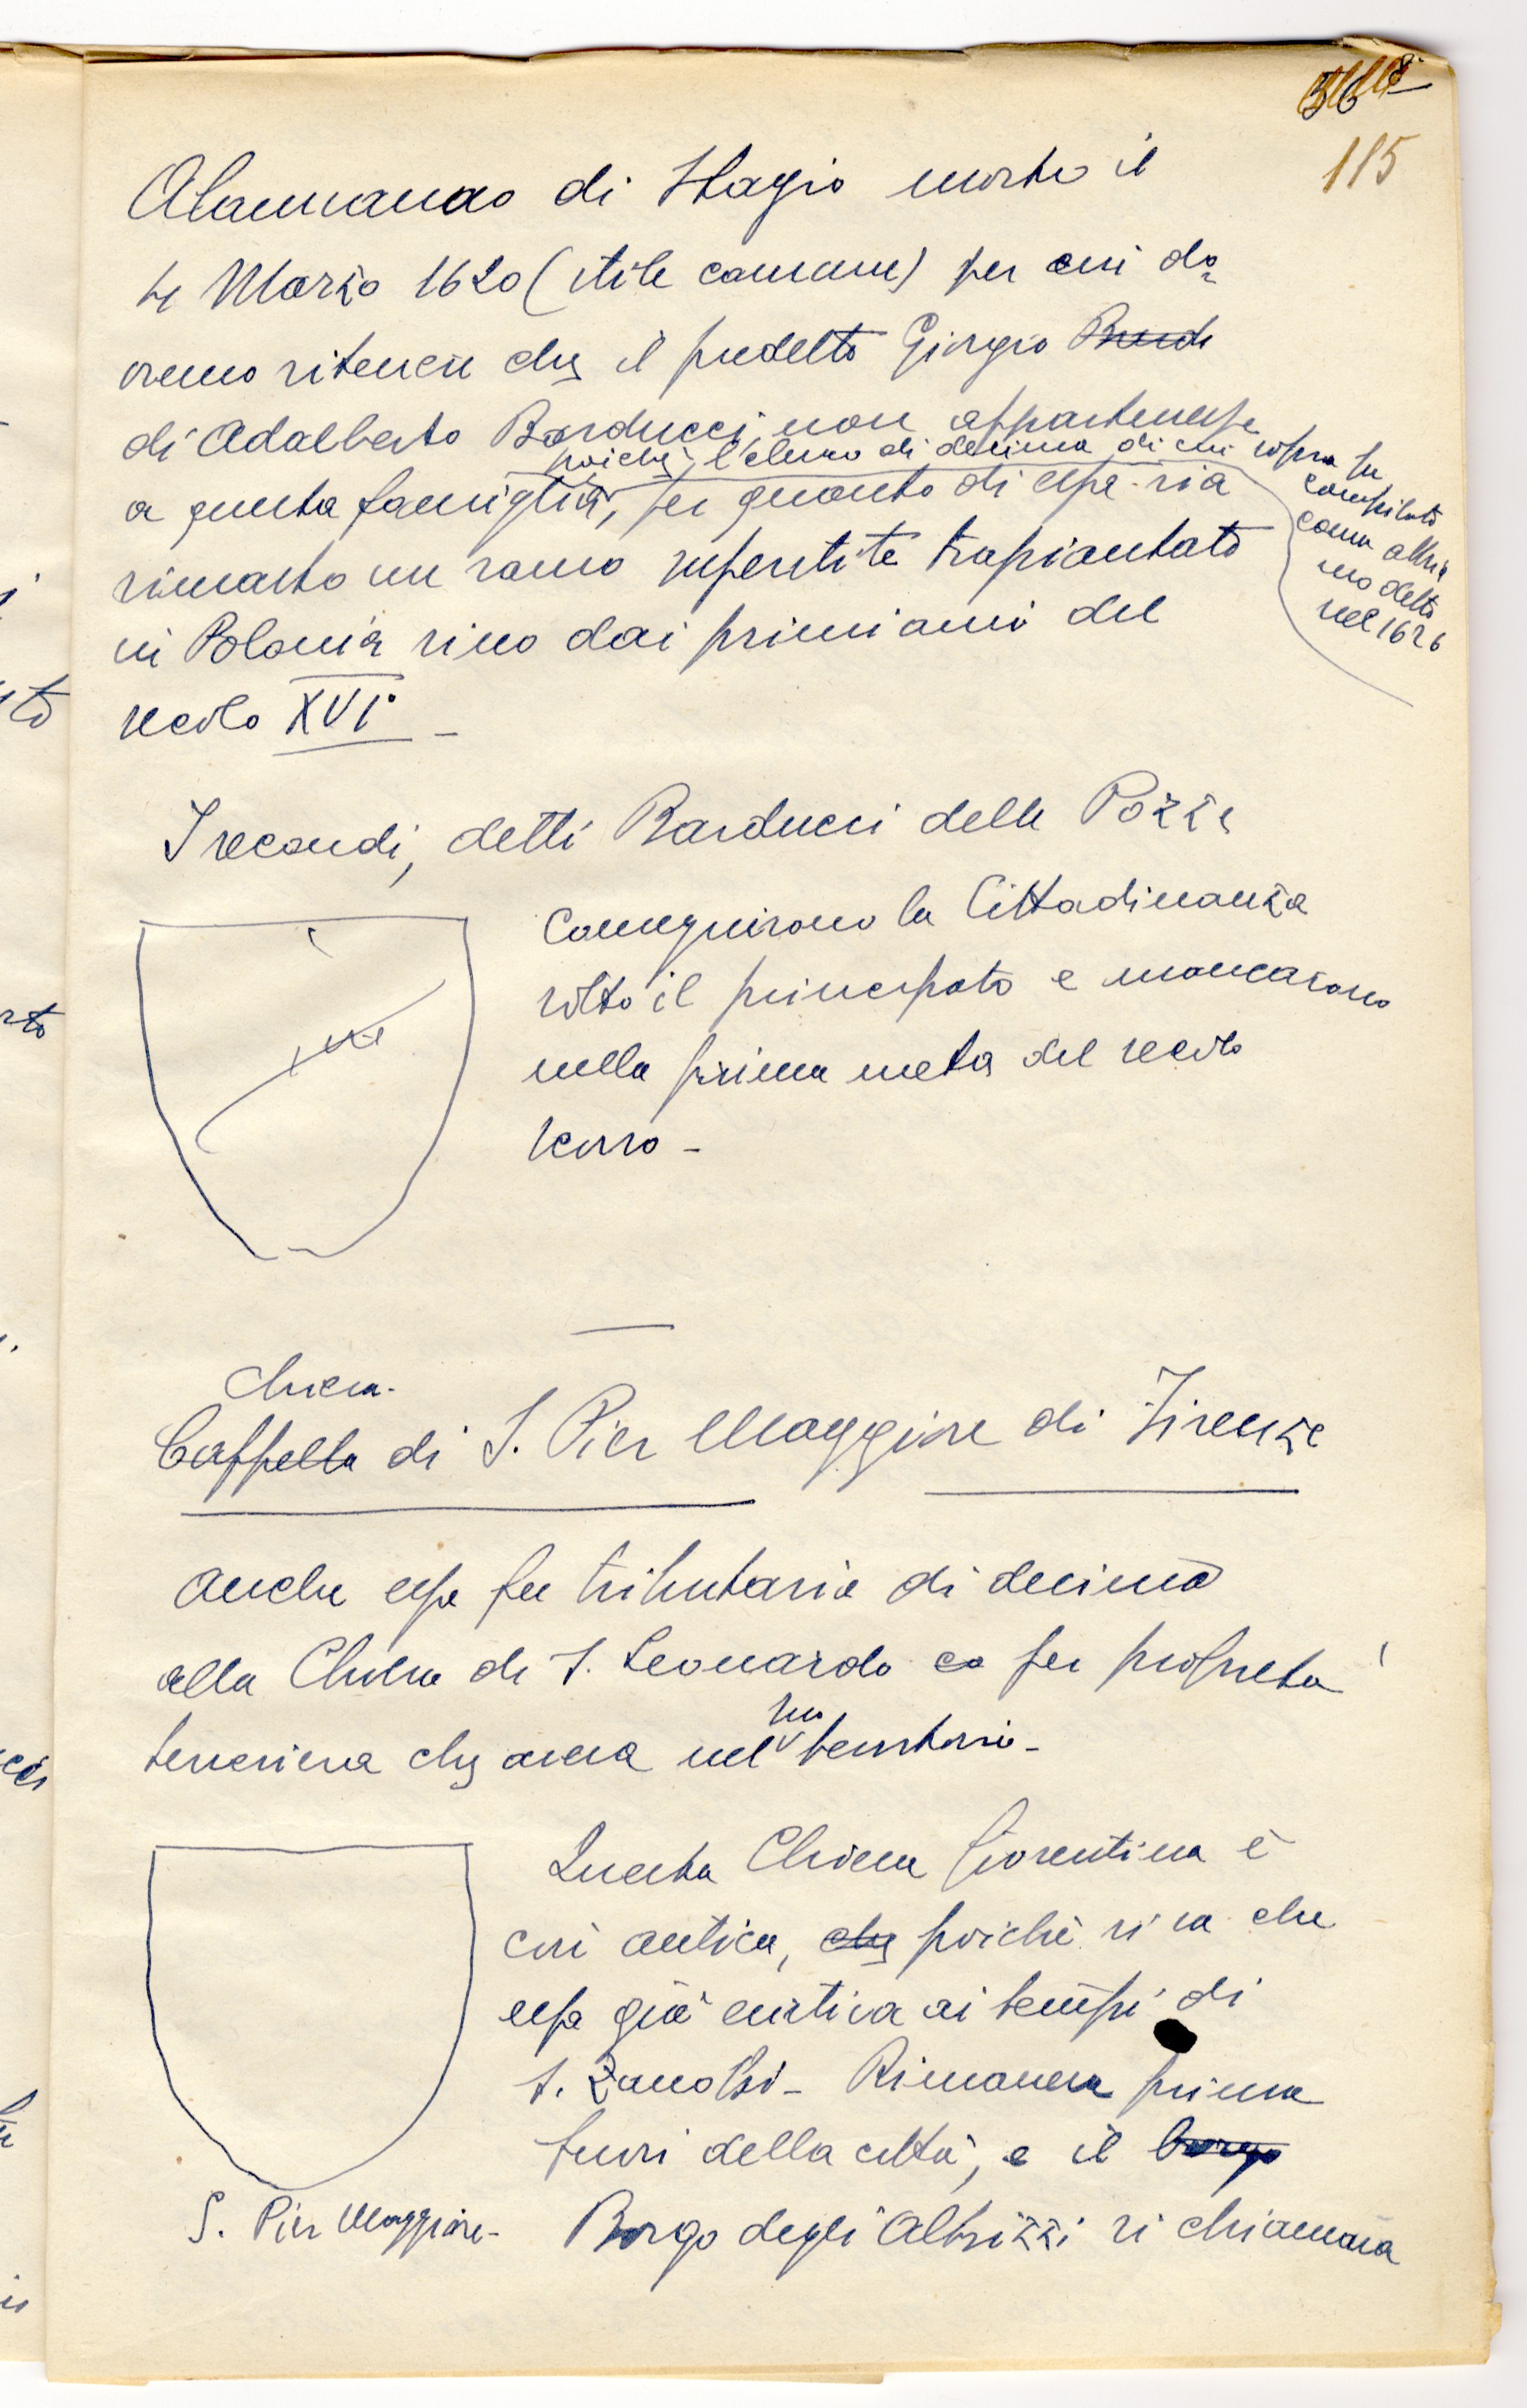 115
Alamanno di Stagio morto il
4 Marzo 1620 (stile comune) per cui do=
vremo ritenere che il predetto Giorgio Bard
di Adalberto Barducci, non appartenesse
poichè l'elenco di decima di cui sopra fu
compilato
come abbia
mo detto
nel 1626
a questa famiglia, per quanto di essa sia
rimasto un ramo superstite trapiantato
in Polonia sino dai primi anni del
secolo XVI° -
I secondi, detti Barducci delle Pozze
conseguirono la Cittadinanza
sotto il principato e mancarono
nella prima metà del secolo
scorso -
Chiesa
Cappella di S. Pier Maggiore di Firenze
Anche essa fu tributaria di decima
alla Chiesa di S. Leonardo ea per proprietà
suo
terreriera che aveva nel territorio -
Questa Chiesa fiorentina è
così antica, che poichè si sa che
essa già esisteva ai tempi di
S. Zanobi - Rimaneva prima
fuori della città, e il borgo
S. Pier Maggiore - Borgo degli Albizzi si chiamava